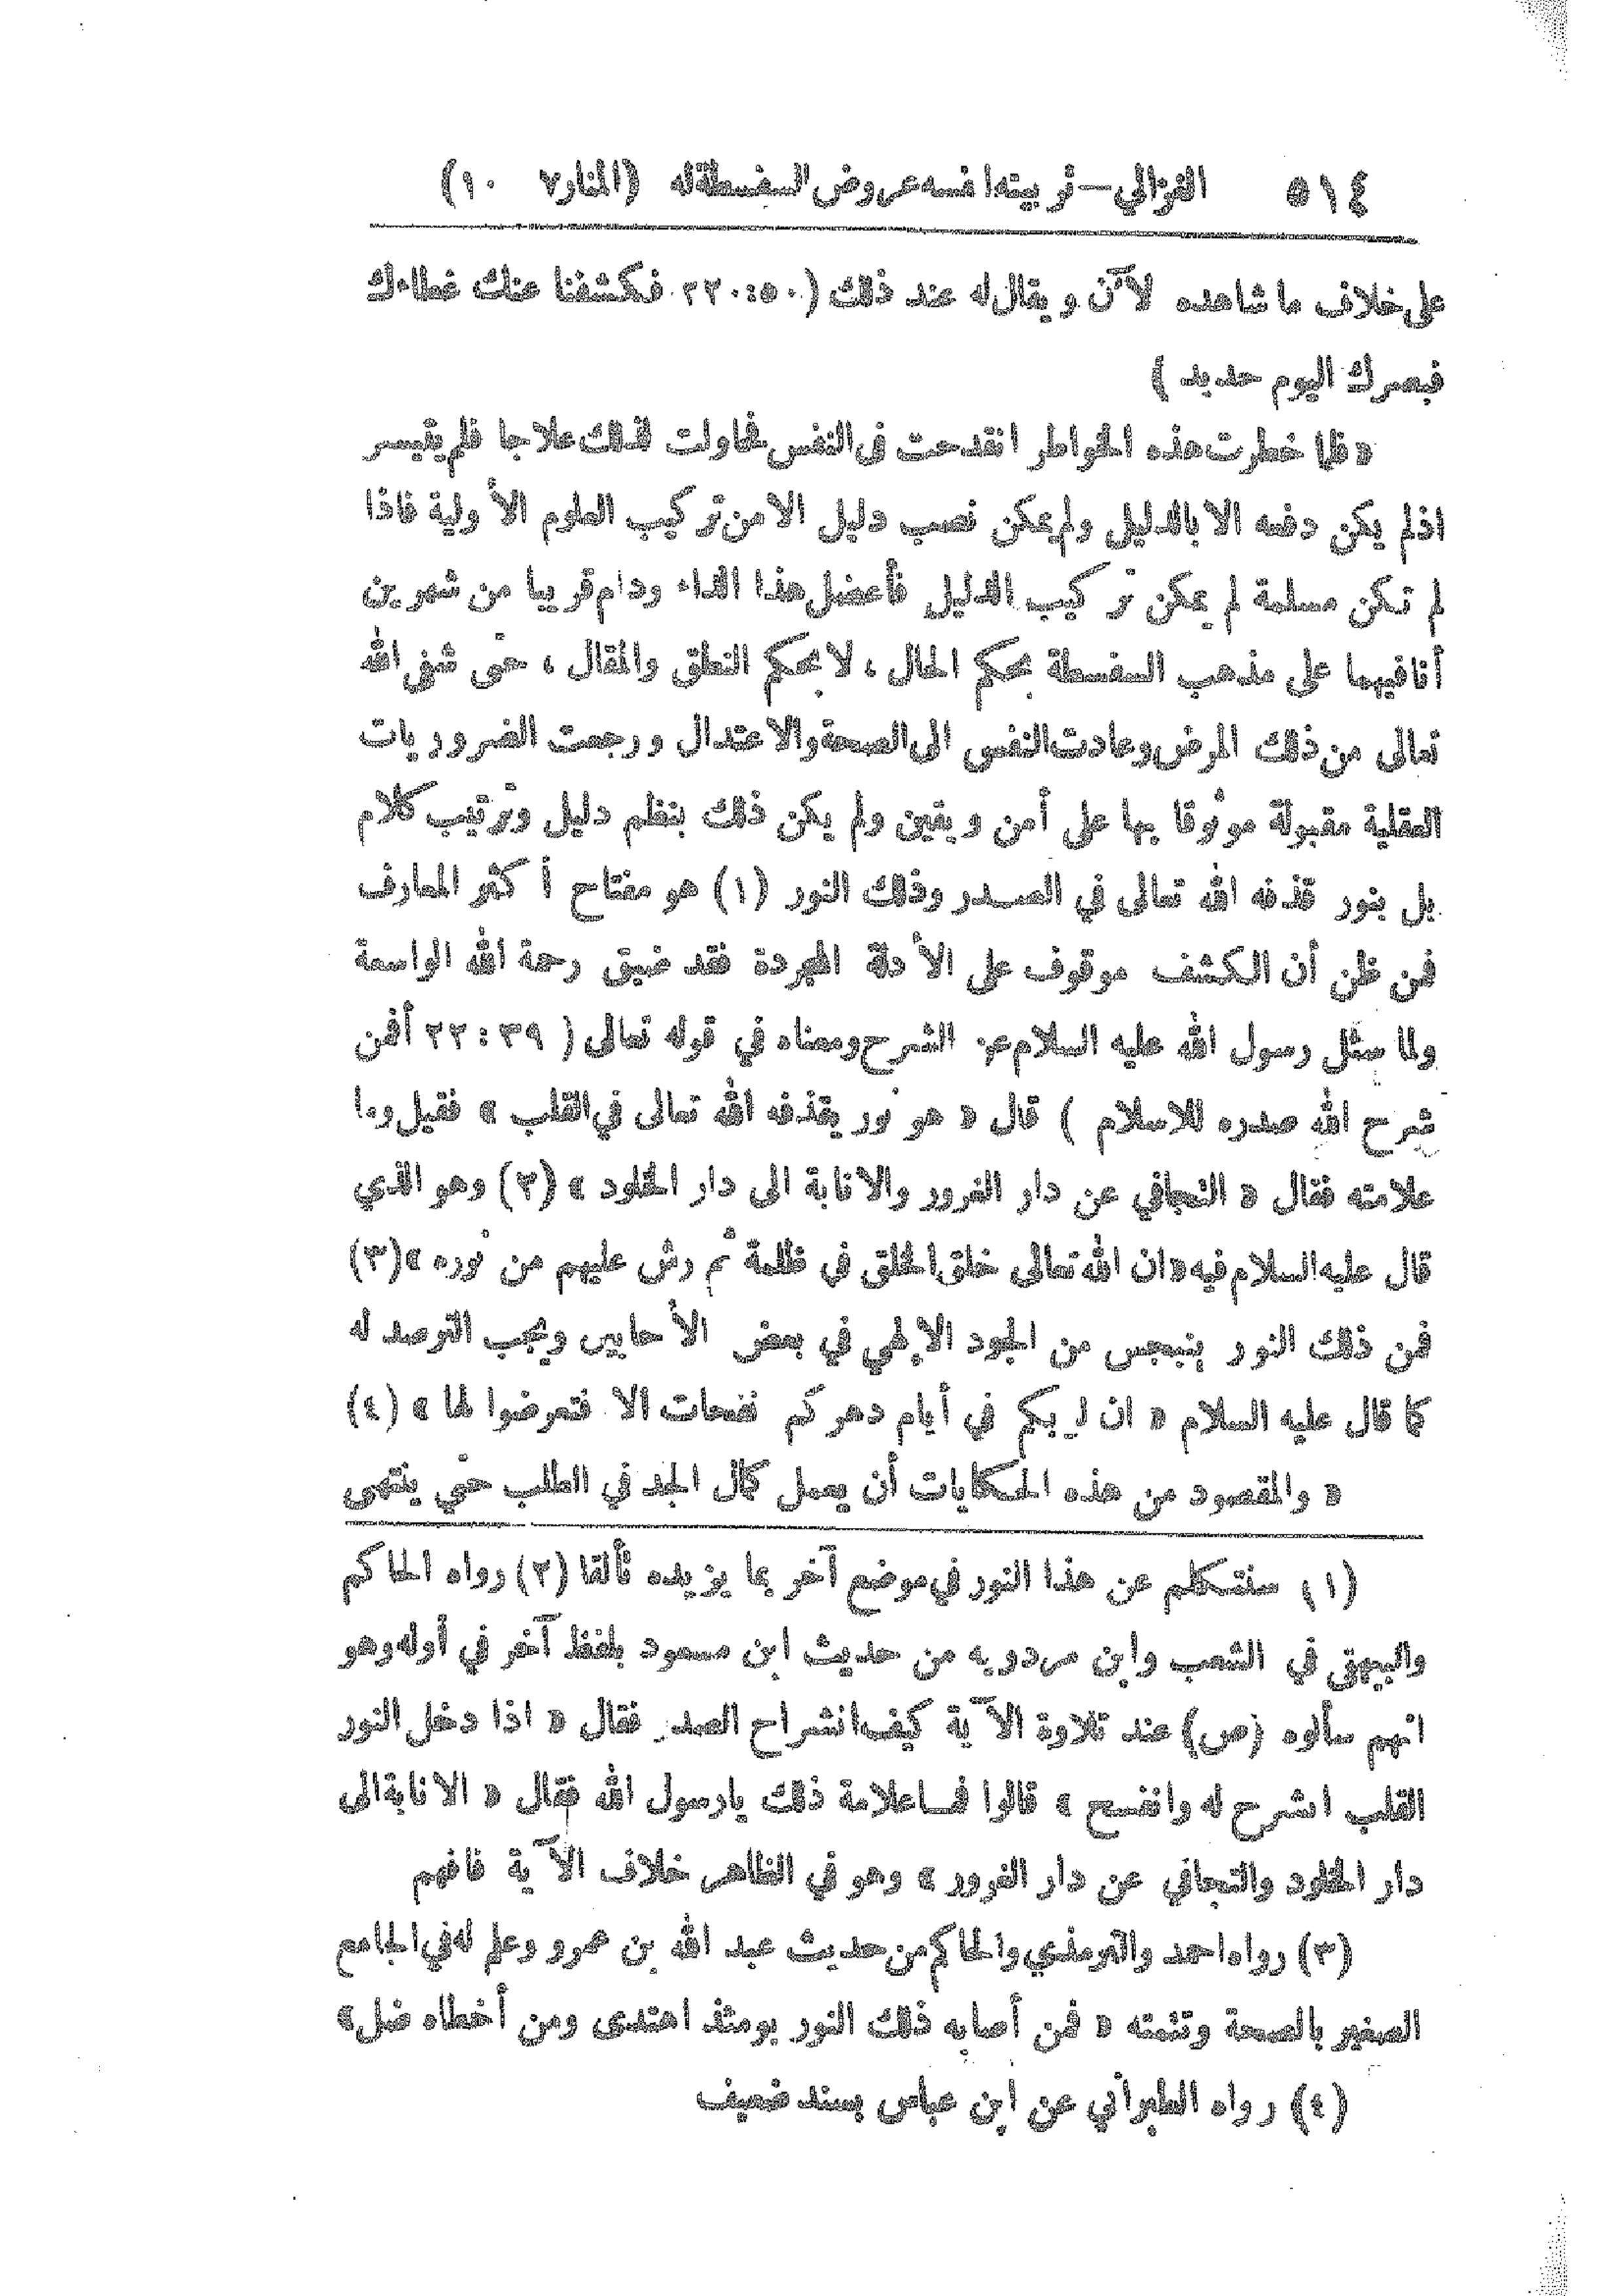 ٥١٤ الغزالي—تربيته نفسه عروض السفسطة له (المنار ٧ ١٠)
على خلاف ما شاهده لآن ويقال له عند ذلك (٢٢:٥٠ فكشفنا عنك غطاءك
فبصرك اليوم حديد )
« فلما خطرت هذه الخواطر انقدحت في النفس فحاولت لذلك علاجا فلم يتيسر
اذلم يكن دفعه الا بالدليل ولم يمكن نصب دليل الا من تركيب العلوم الأولية فاذا
لم تكن مسلمة لم يمكن تركيب الدليل فأعضل هذا الداء ودام قريبا من شهرين
أنا فيهما على مذهب السفسطة بحكم الحال ، لا بحكم النطق والمقال ، حتى شفى الله
تعالى من ذلك المرض وعادت النفس الى الصحة والاعتدال ورجعت الضروريات
العقلية مقبولة موثوقا بها على أمن ويقين ولم يكن ذلك بنظم دليل وترتيب كلام
بل بنور قذفه الله تعالى في الصدر وذلك النور (١) هو مفتاح أكثر المعارف
فمن ظن أن الكشف موقوف على الأدلة المجردة فقد ضيق رحمة الله الواسعة
ولما سئل رسول الله عليه السلام عن الشرح ومعناه في قوله تعالى ( ٣٩ : ٢٢ أفمن
شرح الله صدره للاسلام ) قال « هو نور يقذفه الله تعالى في القلب » فقيل وما
علامته فقال « التجافي عن دار الغرور والانابة الى دار الخلود » (٢) وهو الذي
قال عليه السلام فيه « ان الله تعالى خلق الخلق في ظلمة ثم رش عليهم من نوره » (٣)
فمن ذلك النور ينبجس من الجود الإلهي في بعض الأحايين ويجب الترصد له
كما قال عليه السلام « ان لربكم في أيام دهركم نفحات الا فتعرضوا لها » (٤)
« والمقصود من هذه الحكايات أن يعمل كمال الجد في الطلب حتى ينتهى
(١) سنتكلم عن هذا النور في موضع آخر بما يزيده تألقا (٢) رواه الحاكم
والبيهقي في الشعب وابن مردويه من حديث ابن مسعود بلفظ آخر في أوله وهو
انهم سألوه (ص) عند تلاوة الآية كيف انشراح الصدر فقال « اذا دخل النور
القلب انشرح له وانفسح » قالوا فما علامة ذلك يا رسول الله فقال « الانابة الى
دار الخلود والتجافي عن دار الغرور » وهو في الظاهر خلاف الآية فافهم
(٣) رواه احمد والترمذي والحاكم من حديث عبد الله بن عمرو وعلم له في الجامع
الصغير بالصحة وتتمته « فمن أصابه ذلك النور يومئذ اهتدى ومن أخطأه ضل »
(٤) رواه الطبراني عن ابن عباس بسند ضعيف